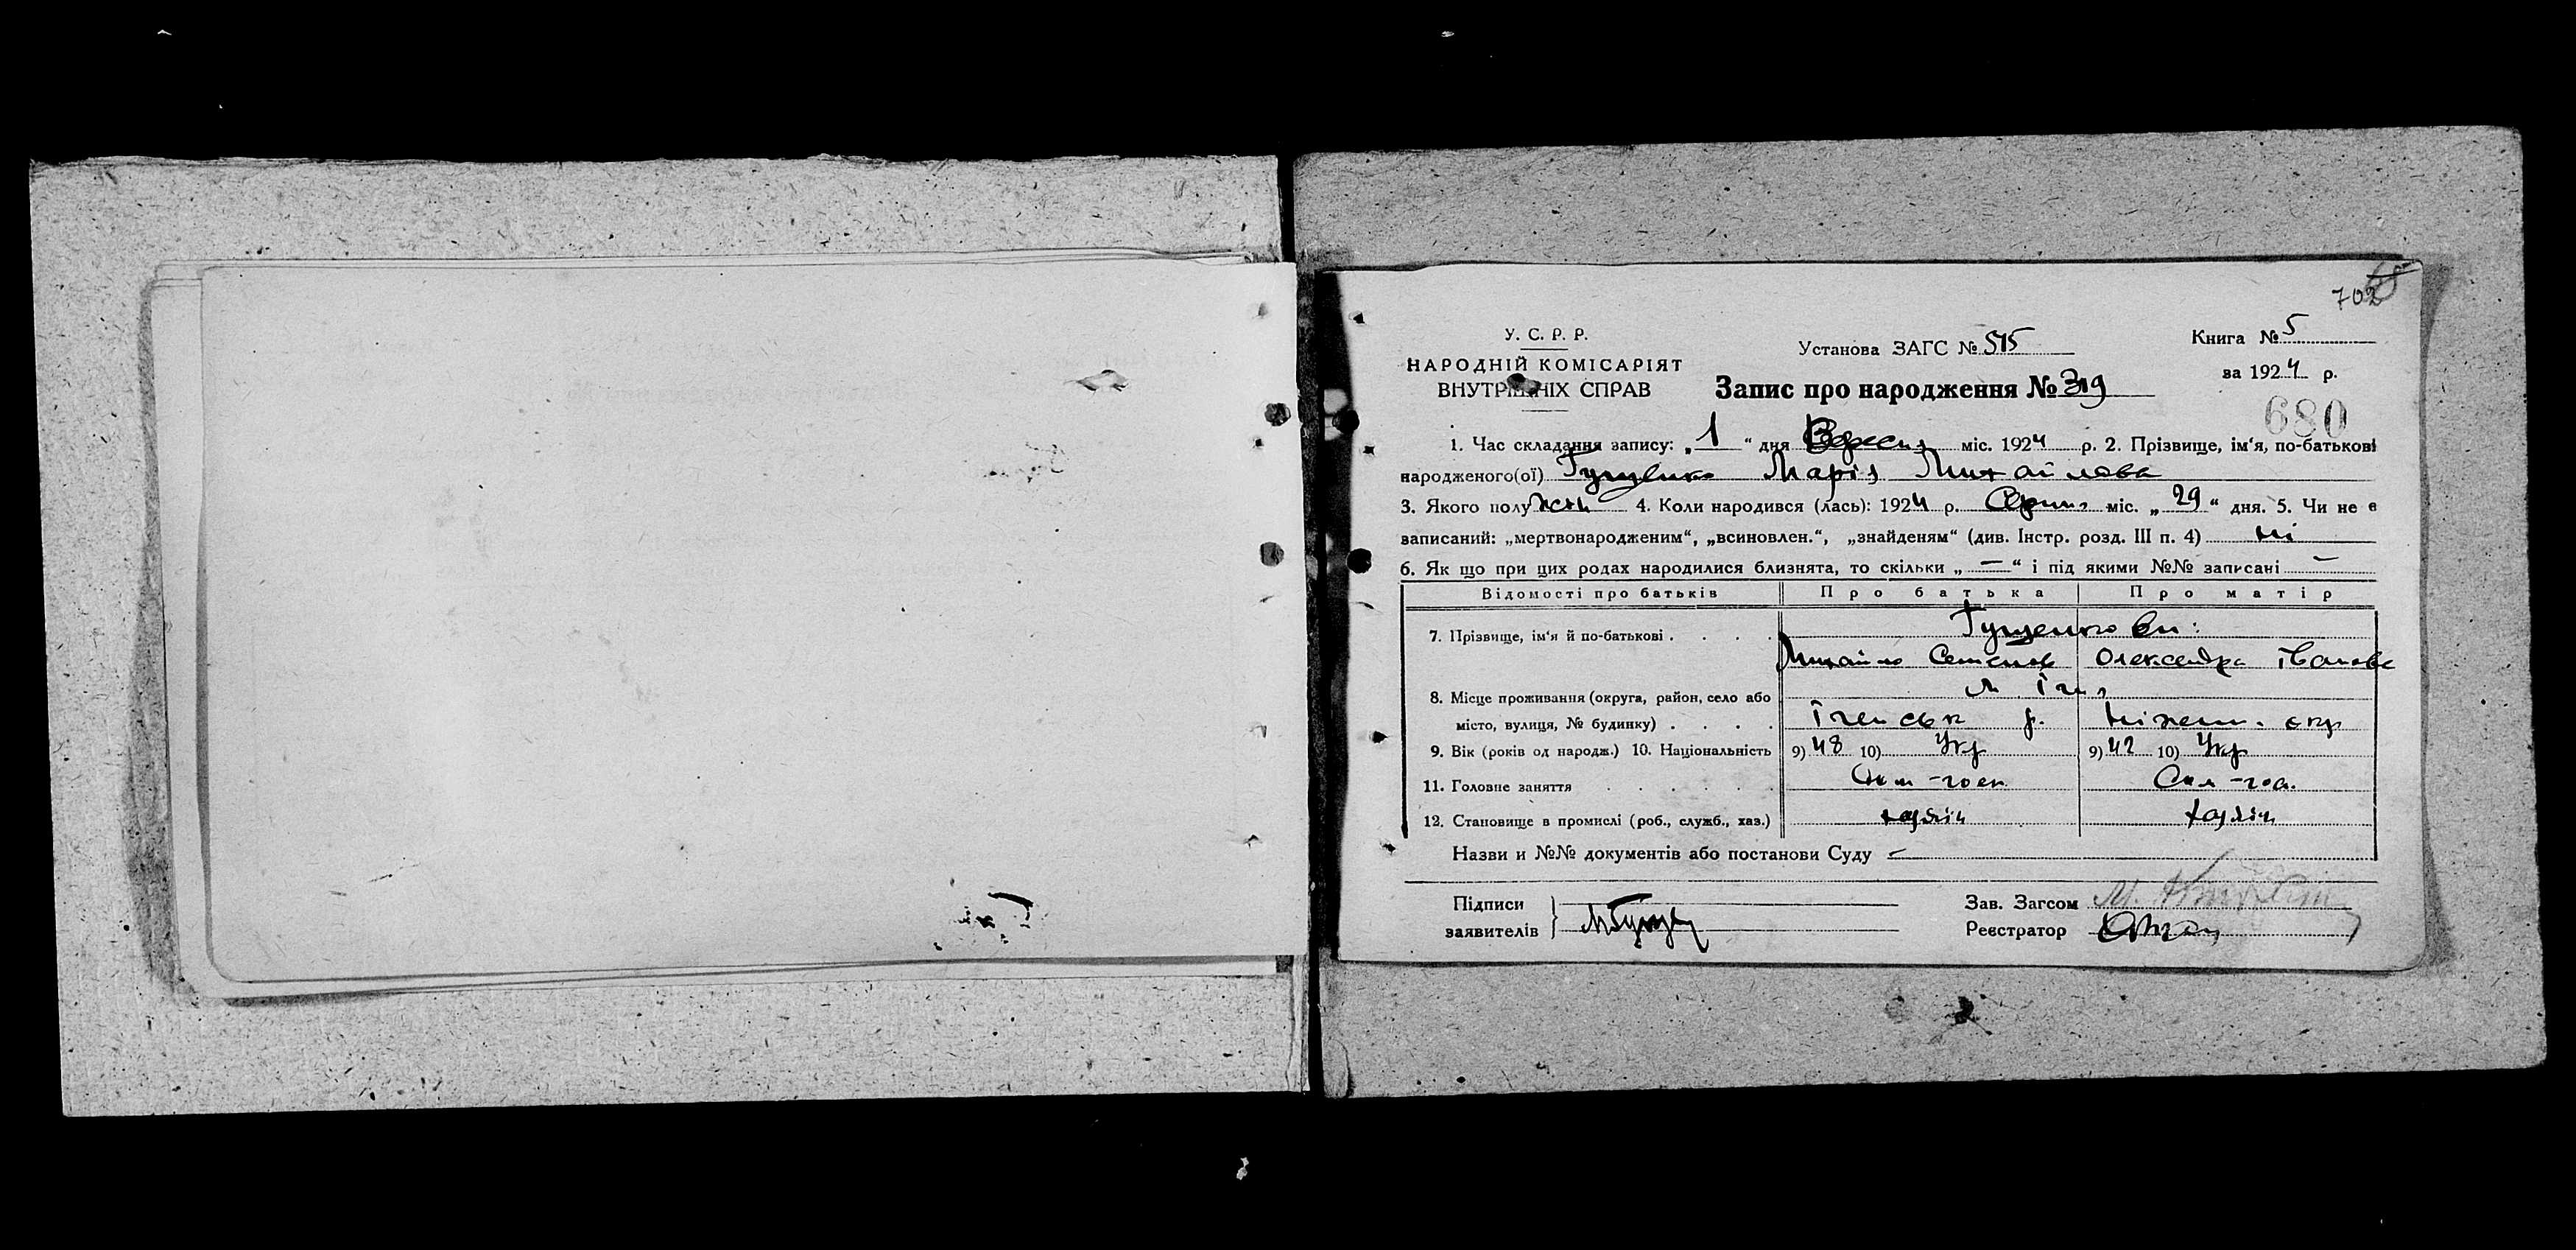 702
У. С. Р. Р.
НАРОДНІЙ КОМІСАРІЯТ
ВНУТРІШНІХ СПРАВ
Установа ЗАГС № 515
Запис про народження № 319
Книга № 5
за 1924 р.
680
1. Час складання запису: „ 1 “ дня Вересня міс. 1924 р. 2. Прізвище, ім‘я, по-батькові
народженого(ої) Гущенко Марія Михайлова
3. Якого полу жін 4. Коли народився (лась): 1924 р. Серпня міс. „ 29 “ дня. 5. Чи не є
записаний: „мертвонародженим“, „всиновлен.“, „знайденям“ (див. Інстр. розд. III п. 4) ні
6. Як що при цих родах народилися близнята, то скільки „ — “ і під якими №№ записані —
Відомості про батьків Про батька Про матір
7. Прізвище, ім‘я й по-батькові . . . . Гущенкови:
Михайло Семенов Олександра Іванова
8. Місце проживання (округа, район, село або м Ічня
місто, вулиця, № будинку) . . . . Іченськ р. Ніжен. окр
9. Вік (років од народж.) 10. Національність 9) 48 10) Укр 9) 42 10) Укр
11. Головне заняття . . . . . .
12. Становище в промислі (роб., служб., хаз.)
Назви и №№ документів або постанови Суду —
Підписи
заявителів
Зав. Загсом
Реєстратор